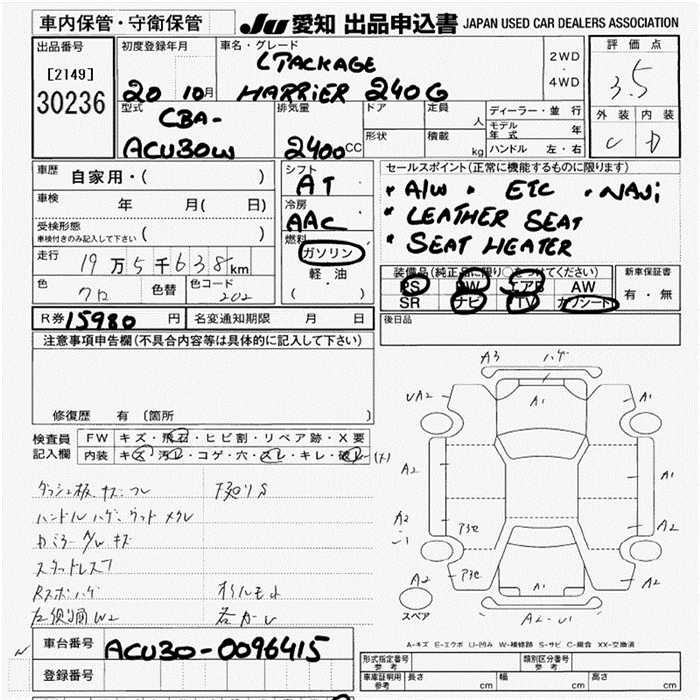 車内保管・守衛保管
JU 愛知 出品申込書 JAPAN USED CAR DEALERS ASSOCIATION
出品番号
[2149]
30236
初度登録年月
20 10月
車名・グレード
L PACKAGE
HARRIER 240G
2WD
・
4WD
評価点
3.5
外装 内装
C D
型式
CBA-
ACU30W
排気量
2400CC
ドア
定員
人
形状
積載
kg
ディーラー・並行
モデル
年式 年
ハンドル 左・右
車歴
自家用・( )
車検
年 月( 日)
受検形態
車検付きのみ記入して下さい ( )
走行
19万5千638km
色
クロ
色替
色コード
202
シフト
AT
冷房
AAC
燃料
ガソリン
軽油
( )
セールスポイント(正常に機能するものに限ります)
* A/W . ETC . NAVi
* LEATHER SEAT
* SEAT HEATER
装備品(純正品に限り○をつけてください)
PS PW エアB AW
SR ナビ TV カワシート
新車保証書
有・無
R券 15980 円
名変通知期限 月 日
後日品
注意事項申告欄(不具合内容等は具体的に記入して下さい)
修復歴 有〔箇所 〕
検査員
記入欄
FW キズ・飛石・ヒビ割・リペア跡・X要
内装 キズ・汚レ・コゲ・穴・スレ・キレ・破レ
ダッシュ板 キズ
ハンドル ハゲ、ウッド メクレ
キズ
Rスポ ハゲ
W2
下廻りS
A3 ハゲ
UA2
A1
A1
A2
A2
A1
A2
A2
A2
A1
スペア
A-キズ E-エクボ U-凹み W-補修跡 S-サビ C-腐蝕 XX-交換済
車台番号
ACU30-0096415
登録番号
形式指定番号
参考
類別区分番号
参考
車庫証明用
参考
長さ cm
幅 cm
高さ cm